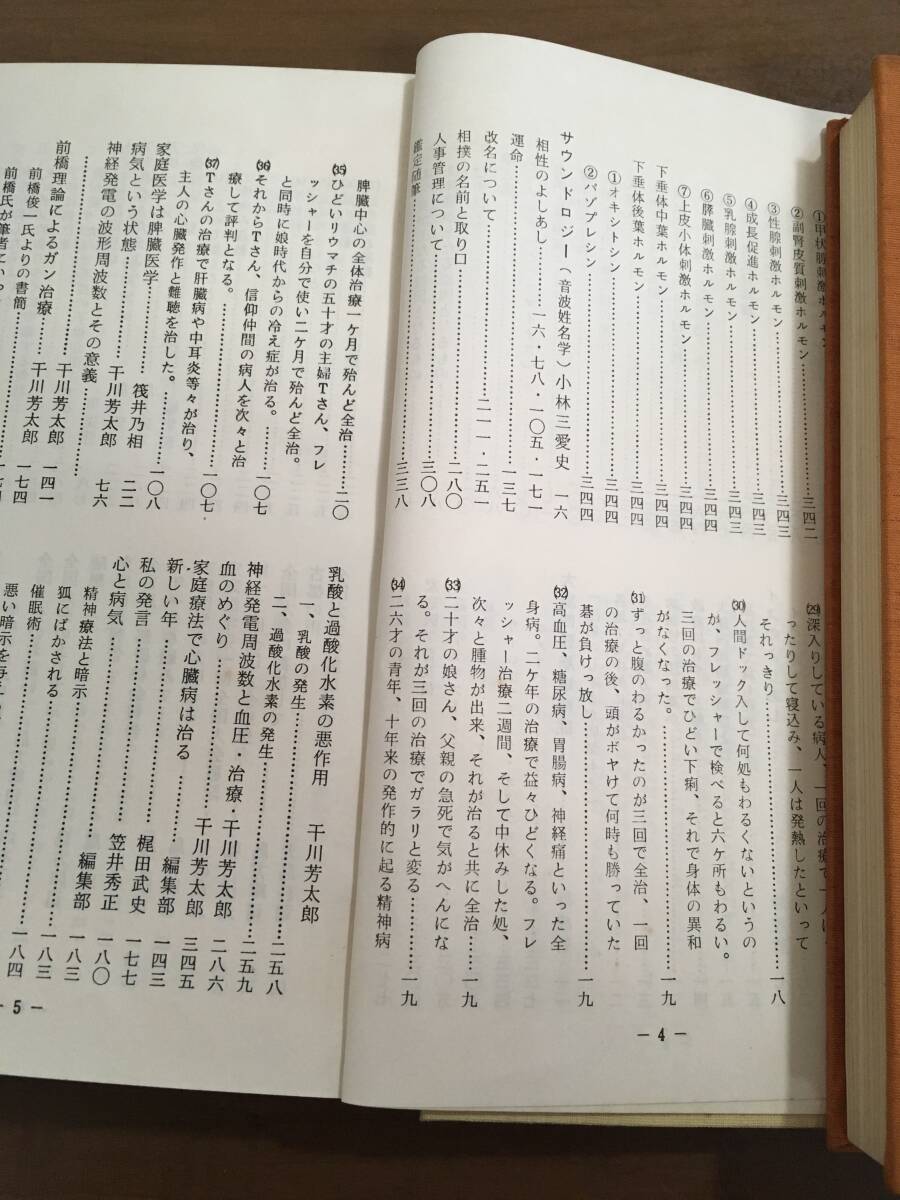 ①甲状腺刺激ホルモン………三四二
②副腎皮質刺激ホルモン………三四三
③性腺刺激ホルモン………三四三
④成長促進ホルモン………三四三
⑤乳腺刺激ホルモン………三四三
⑥膵臓刺激ホルモン………三四四
⑦上皮小体刺激ホルモン………三四四
下垂体中葉ホルモン………三四四
下垂体後葉ホルモン………三四四
①オキシトシン………三四四
②バゾプレシン………三四四
サウンドロジー（音波姓名学）小林三愛史　一六
相性のよしあし……一六・七八・一〇五・一七一
運命………一三七
改名について………二一一・二五一
相撲の名前と取り口………二八〇
人事管理について………三〇八
鑑定随筆………三三八
(29)深入りしている病人、一回の治療で一人は
ったりして寝込み、一人は発熱したといって
それっきり………一八
(30)人間ドック入して何処もわるくないというの
が、フレッシャーで検べると六ケ所もわるい。
三回の治療でひどい下痢、それで身体の異和
がなくなった。………一九
(31)ずっと腹のわるかったのが三回で全治、一回
の治療の後、頭がボヤけて何時も勝っていた
碁が負けっ放し………一九
(32)高血圧、糖尿病、胃腸病、神経痛といった全
身病。二ケ年の治療で益々ひどくなる。フレ
ッシャー治療二週間、そして中休みした処、
次々と腫物が出来、それが治ると共に全治……一九
(33)二十才の娘さん、父親の急死で気がへんにな
る。それが三回の治療でガラリと変る………一九
(34)二六才の青年、十年来の発作的に起る精神病
— 4 —
脾臓中心の全体治療一ケ月で殆んど全治……二〇
(35)ひどいリウマチの五十才の主婦Tさん、フレ
ッシャーを自分で使い二ケ月で殆んど全治。
と同時に娘時代からの冷え症が治る。………一〇七
(36)それからTさん、信仰仲間の病人を次々と治
療して評判となる。………一〇七
(37)Tさんの治療で肝臓病や中耳炎等々が治り、
主人の心臓発作と難聴を治した。………一〇八
家庭医学は脾臓医学
病気という状態………筏井乃相　二二
神経発電の波形周波数とその意義
………干川芳太郎　七六
前橋理論によるガン治療………干川芳太郎　一四一
前橋俊一氏よりの書簡………干川芳太郎　一七四
前橋氏が筆者に
乳酸と過酸化水素の悪作用　干川芳太郎
一、乳酸の発生………二五八
二、過酸化水素の発生………二五九
神経発電周波数と血圧・治療・干川芳太郎　二八六
血のめぐり………干川芳太郎　三四五
家庭療法で心臓病は治る
新しい年………編集部　一四三
私の発言………梶田武史　一七七
心と病気………笠井秀正　一八〇
精神療法と暗示………編集部　一八三
狐にばかされる………一八三
催眠術………一八四
悪い暗示を与え
— 5 —